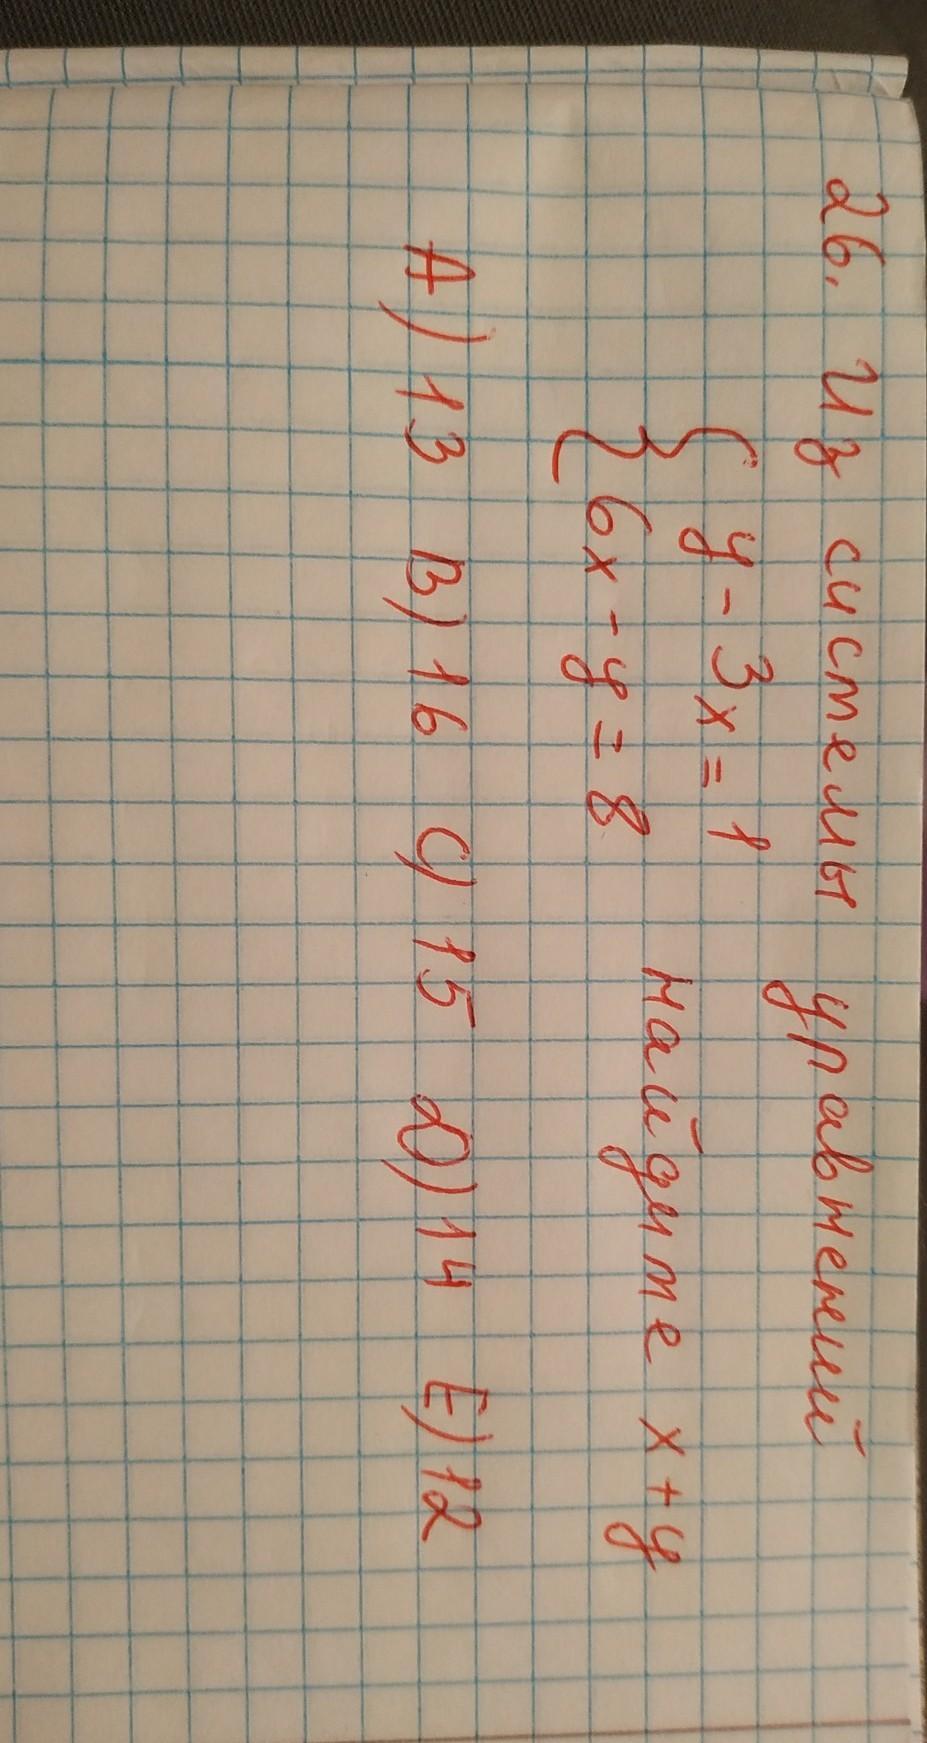 26. Из системы уравнений
{ y - 3x = 1
6x - y = 8 найдите x + y
A) 13 B) 16 C) 15 D) 14 E) 12